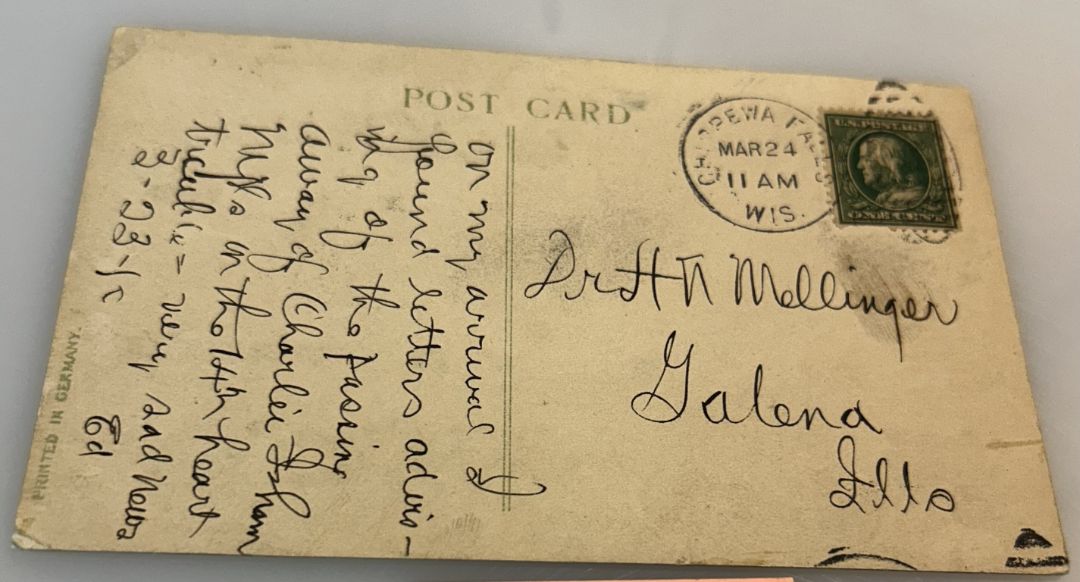 POST CARD
CHIPPEWA FALLS
MAR 24
11 AM
WIS.
U.S. POSTAGE
ONE CENT
Dr H N Mellinger
Galena
Ills
On my arrival I
found letters advis-
ing of the passing
away of Charlie Isham
in the 14th heart
trouble = very sad News
Ed
PRINTED IN GERMANY.